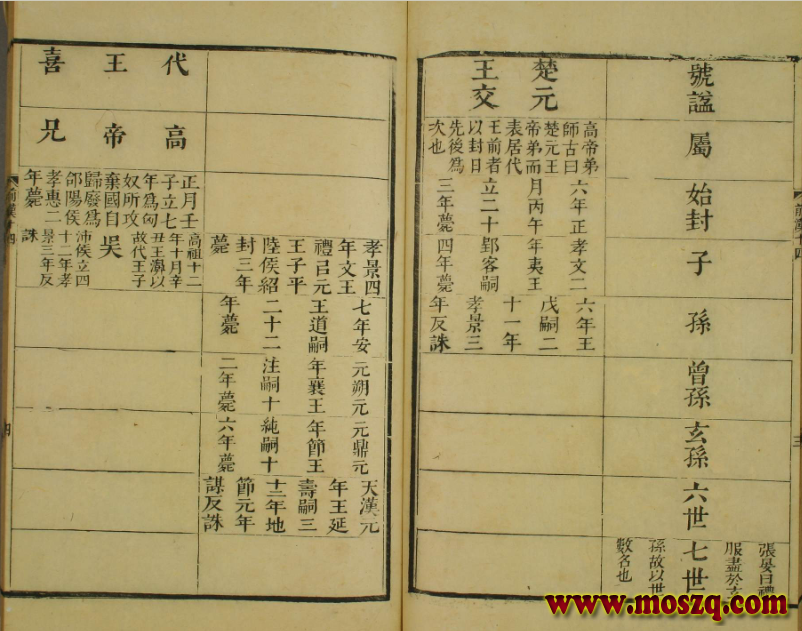 號諡
屬
始封
子
孫
曾孫
玄孫
六世
七世
張晏曰禮
服盡於玄
孫故以世
數名也
楚元
王交
高帝弟
師古曰
楚元王
帝弟而
表居代
王前者
以封日
先後爲
次也
六年正
月丙午
立二十
三年薨
孝文二
年夷王
郢客嗣
四年薨
六年王
戊嗣二
十一年
孝景三
年反誅
孝景四
年文王
禮㠯元
王子平
陸侯紹
封三年
薨
七年安
王道嗣
二十二
年薨
元朔元
年襄王
注嗣十
二年薨
元鼎元
年節王
純嗣十
六年薨
天漢元
年王延
壽嗣三
十二年地
節元年
謀反誅
代王喜
高帝兄
正月壬
子立七
年爲匈
奴所攻
棄國自
歸廢爲
郃陽侯
孝惠二
年薨
吳
高祖十二
年十月辛
丑王濞以
故代王子
沛侯立四
十二年孝
景三年反
誅
前漢十四
四
www.moszq.com